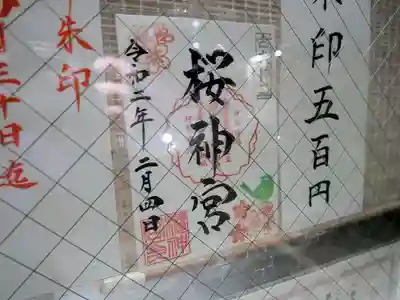 朱印五百円
桜神宮
令和二年 二月四日
朱印
月三十日迄